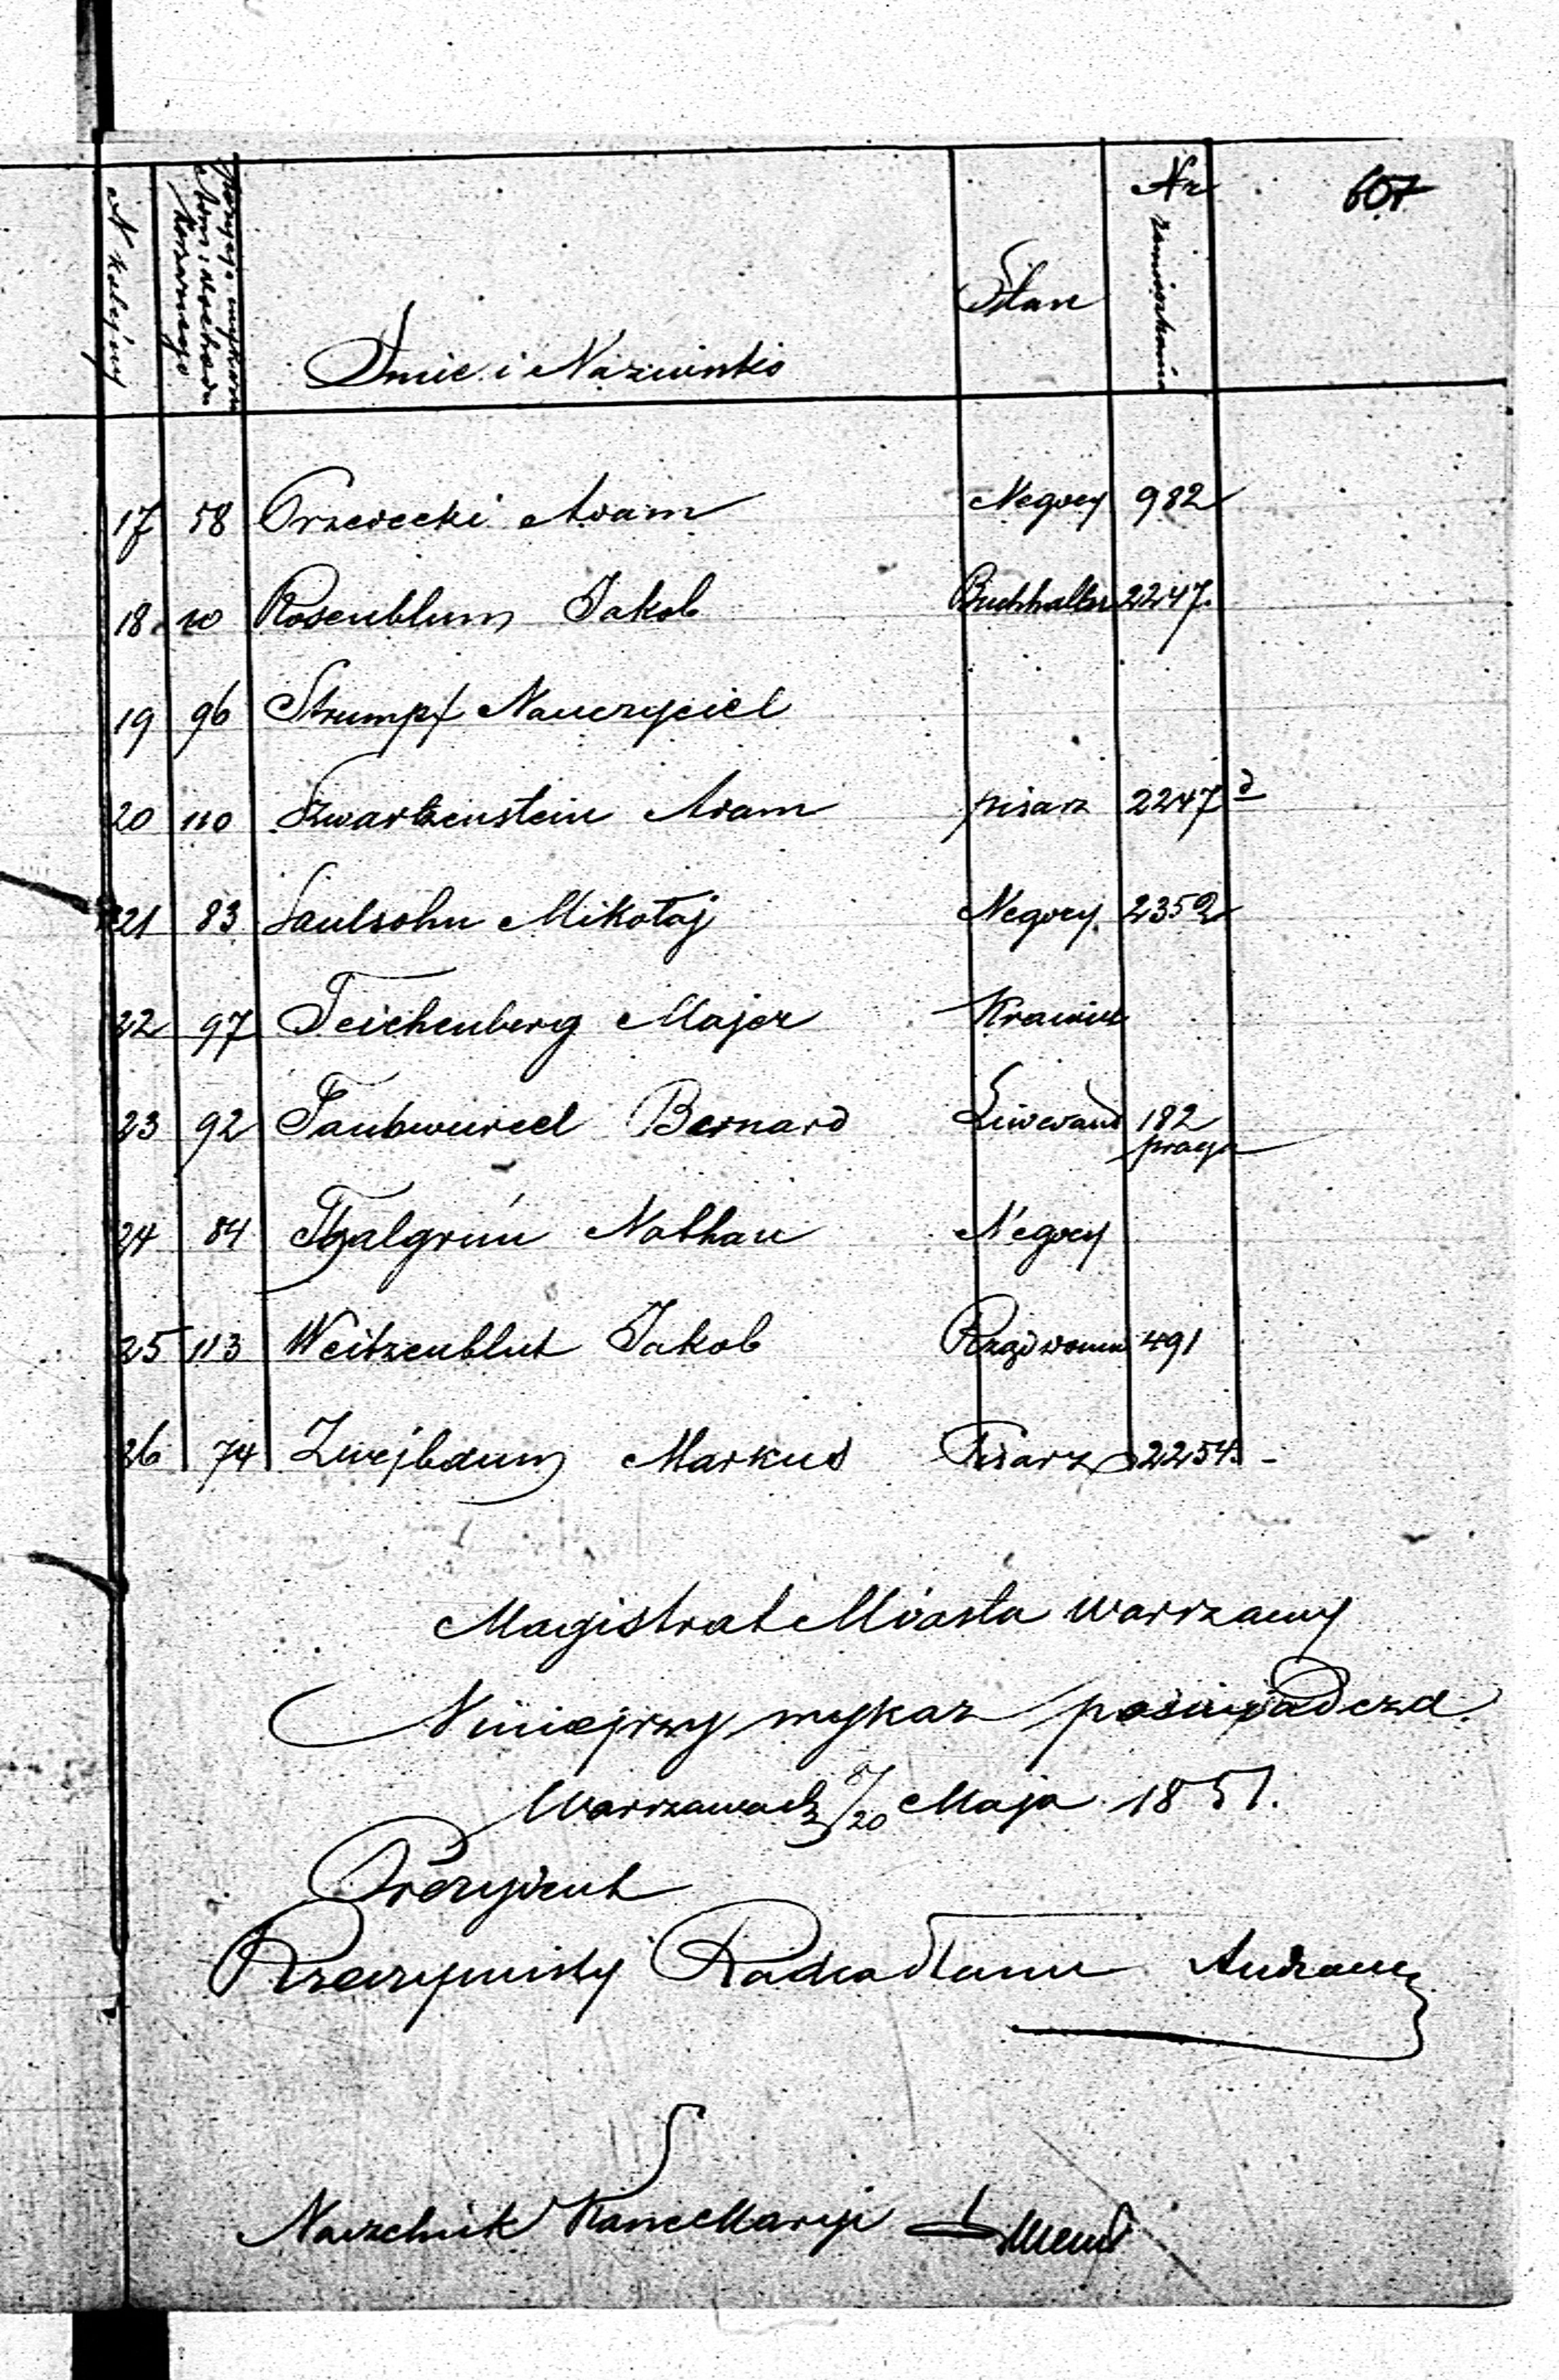 607
N kolejny
Imie i Nazwisko
Stan
Nr zamieszkania
17 58 Orzewecki Adam Negocy 982
18 10 Rosenblum Jakob Buchhalter 2247.
19 96 Strumpf Nauczyciel
20 110 Szwartzenstein Adam pisarz 2247 d
21 83 Saulsohn Mikołaj Negocy. 2352
22 97 Teichenberg Majer Krawiec
23 92 Taubwurcel Bernard Liwerant 182
praga
24 84 Thalgrün Nathan Negocy
25 113 Weitzenblut Jakob Rządzdomu 491
26 74 Zwejbaum Markus Pisarz 2254. -
Magistrat Miasta Warszawy
Niniejszy wykaz poświadcza.
Warszawa d 8/20 Maja 1851.
Prezydent
Rzeczywisty Radca Stanu
Naczelnik Kancellaryi